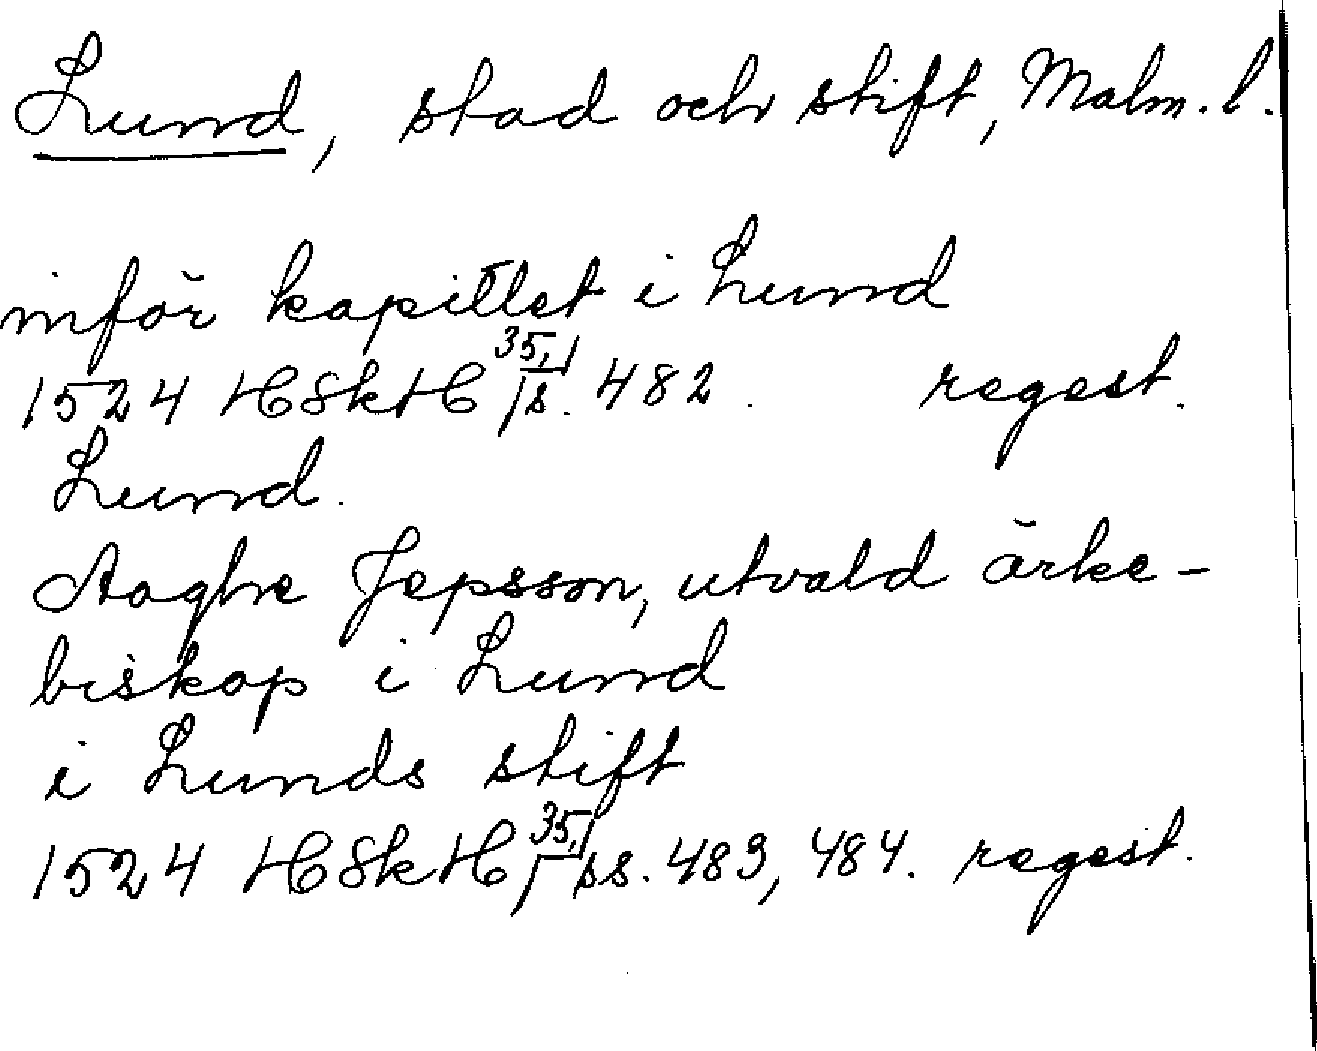 Lund, stad och stift, Malm. l.
inför kapitlet i Lund
1524 HSkH 35,1 s. 482. regest.
Lund.
Aaghe Jepsson, utvald ärke-
biskop i Lund
i Lunds stift
1524 HSkH, 35,1 ss. 483, 484. regest.